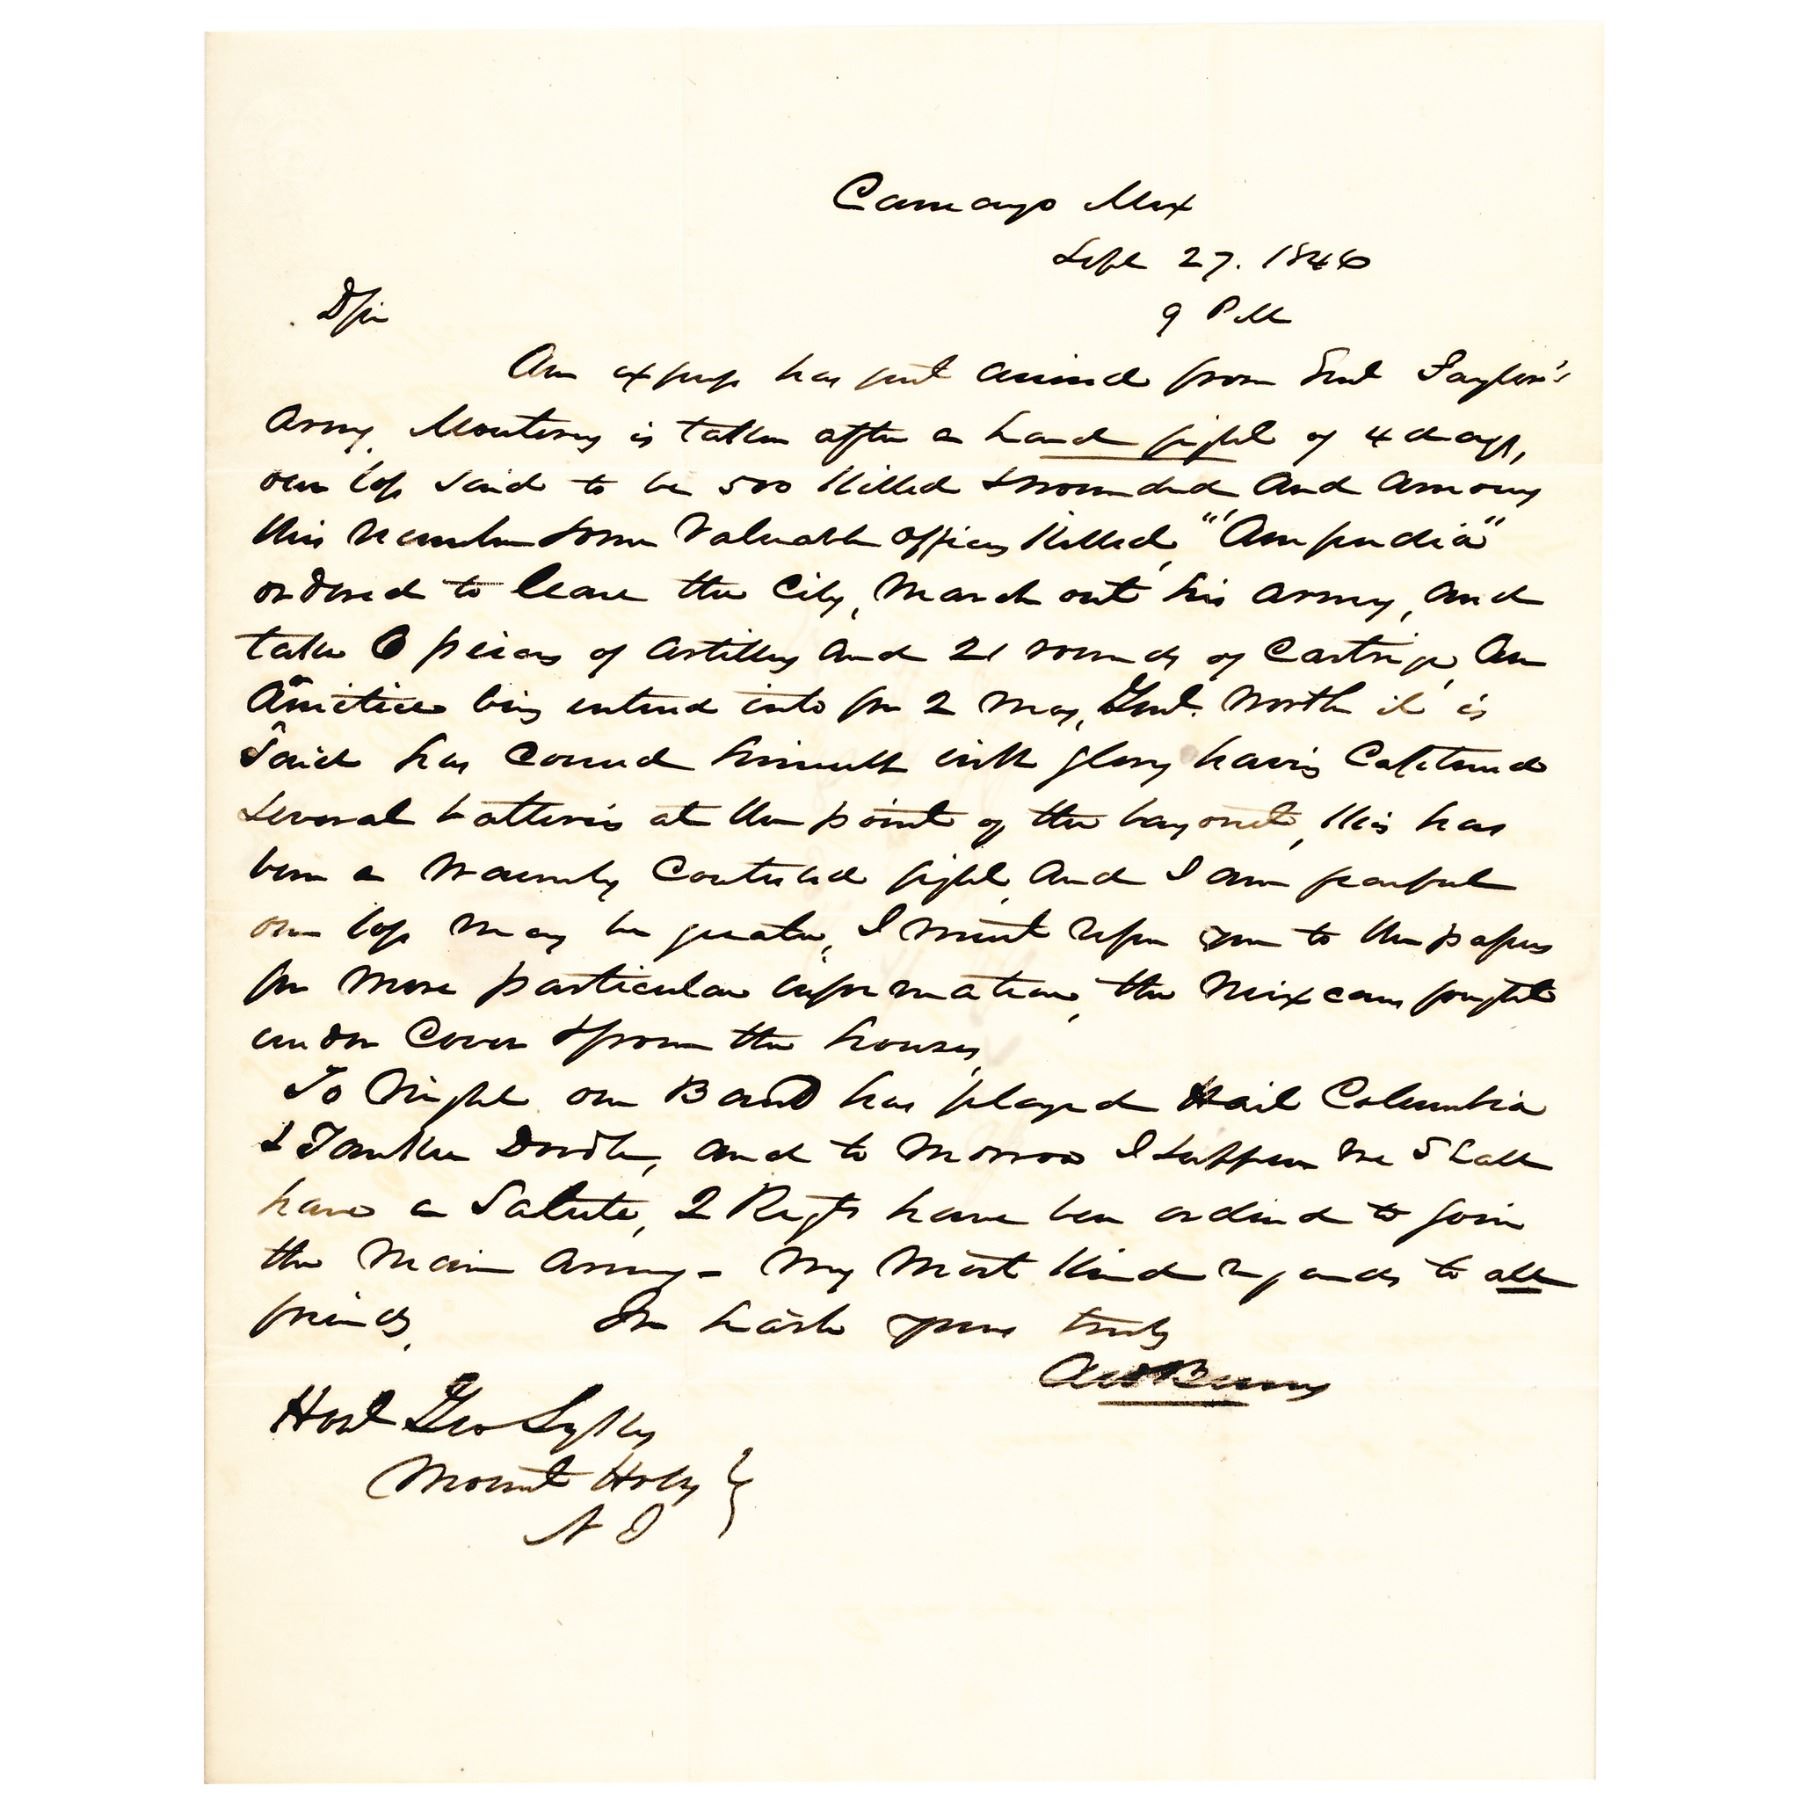 Camargo Mex
Sept 27. 1846
9 P M
D Sir
An express has just arrived from Genl Taylor's
Army, Monterey is taken after a hard fight of 4 days,
our loss said to be 500 killed & wounded, and among
this number some valuable officers killed, "Ampudia"
ordered to leave the City, march out his army, and
take 6 pieces of artillery and 21 rounds of Cartrige, An
Amistice being entered into for 2 mos, Genl. Worth it is
said has covered himself with glory having captured
several batteries at the point of the bayonet, this has
been a warmly contested fight, and I am fearful
our loss may be greater, I must refer you to the papers
for more particular information, the Mexicans fought
under cover & from the houses,
To Night our Band has played Hail Columbia
& Yankee Doodle, and to morrow I suppose we shall
have a Salute, 2 Regts have been ordered to join
the main army - My most kind regards to all
friends, In haste yours truly
Honl Geo Sykes
Mount Holly
N J